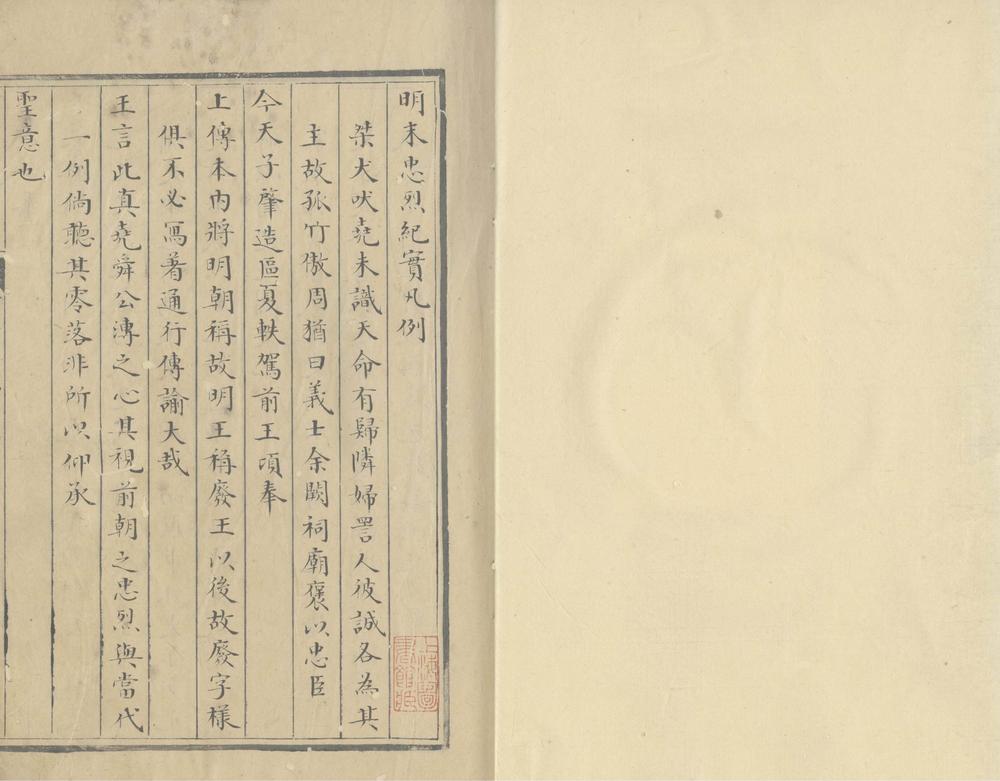 明末忠烈紀實凡例
桀犬吠堯未識天命有歸隣婦詈人彼誠各為其
主故孤竹傲周猶曰義士余闕祠廟褒以忠臣
今天子肇造區夏軼駕前王頃奉
上傳本內將明朝稱故明王稱廢王以後故廢字様
俱不必寫著通行傳諭大哉
王言此真堯舜公溥之心其視前朝之忠烈與當代
一例倘聽其零落非所以仰承
聖意也
上海圖書館藏